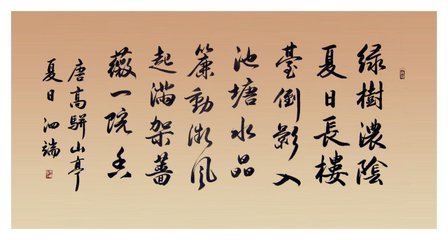 綠樹濃陰
夏日長樓
臺倒影入
池塘水晶
簾動微風
起滿架薔
薇一院香
唐高駢山亭
夏日 泗端